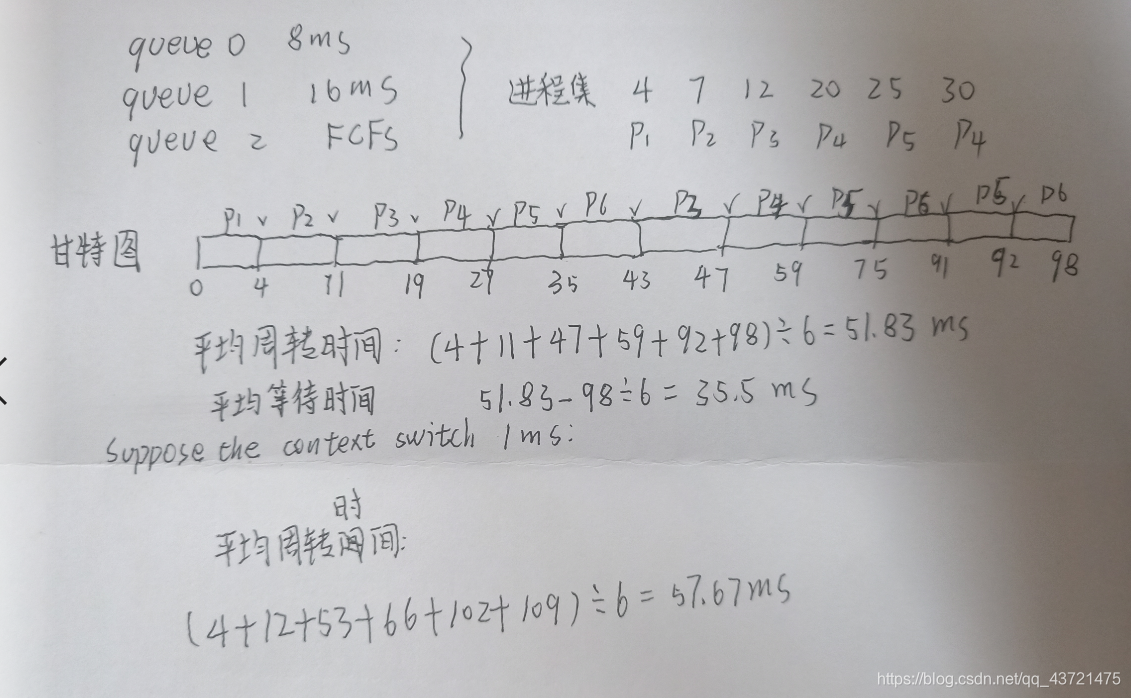 queue 0 8ms
queue 1 16ms
queue 2 FCFS
进程集 4 7 12 20 25 30
P1 P2 P3 P4 P5 P4
P1 P2 P3 P4 P5 P6 P3 P4 P5 P6 P5 P6
甘特图
0 4 11 19 27 35 43 47 59 75 91 92 98
平均周转时间: (4+11+47+59+92+98)÷6=51.83 ms
平均等待时间 51.83-98÷6=35.5 ms
Suppose the context switch 1ms:
时
平均周转间:
(4+12+53+66+102+109)÷6=57.67ms
https://blog.csdn.net/qq_43721475